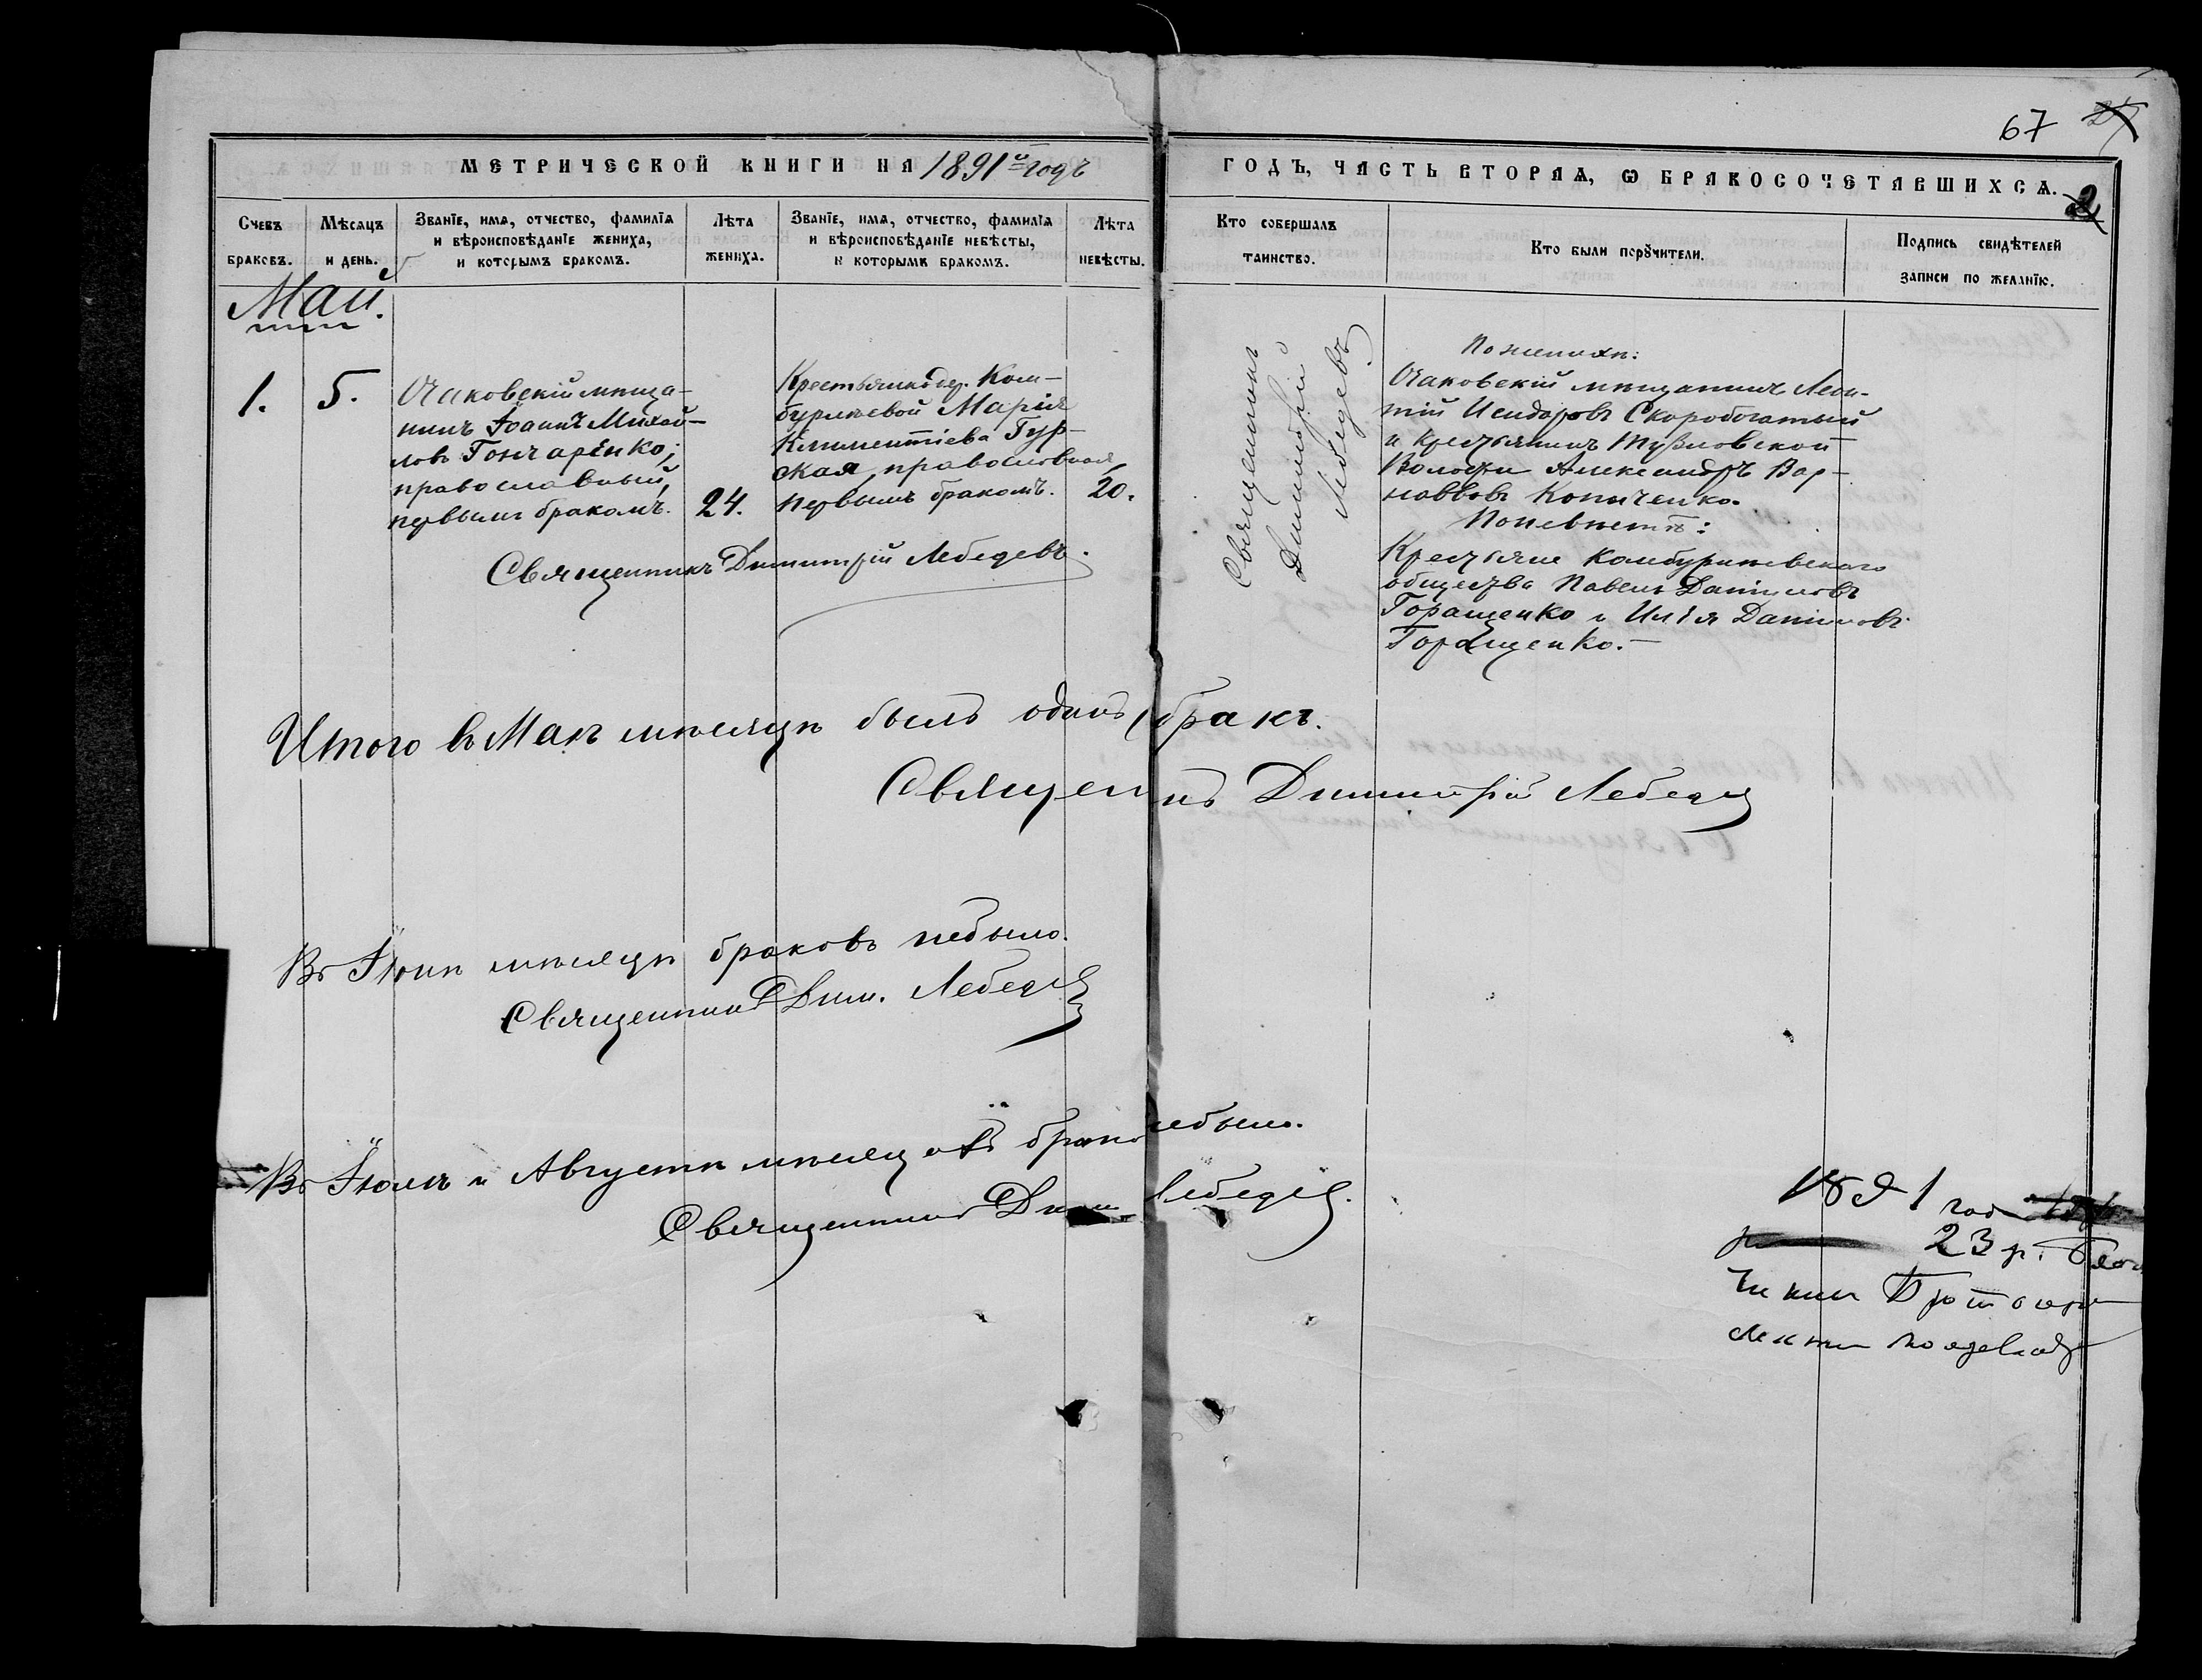 67
МЕТРИЧЕСКОЙ КНИГИ НА 1891й годъ
ГОДЪ, ЧАСТЬ ВТОРАѦ, Ѡ БРАКОСОЧЕТАВШИХСѦ.
2
Счевъ браковъ.
Мѣсяцъ и день.
Званїе, имѧ, отчество, фамилїѧ
и вѣроисповѣданїе жениха,
и которымъ бракомъ.
Лѣта жениха.
Званїе, имѧ, отчество, фамилїѧ
и вѣроисповѣданїе невѣсты,
и которымъ бракомъ.
Лѣта невѣсты.
Кто совершалъ
таинство.
Кто были порꙋчители.
Подпись свидѣтелей
записи по желанїю.
Май.
1.
5.
Очаковскій мѣща-
нинъ Іоаннъ Михай-
ловъ Гончаренко;
православный,
первымъ бракомъ.
24.
Крестьянка дер.
Марія
Климентіева Гур-
ская, православная,
первымъ бракомъ.
20.
Священникъ Димитрій Лебедевъ.
Священникъ
Димитрій
Лебедевъ
По женихѣ:
Очаковскій мѣщанинъ Леон-
тій Исидоровъ Скоробогатый
и крестьянинъ Тузловской
Волости Александръ Вар-
наввовъ Копиченко.
По невѣстѣ:
Крестьяне
общества Павелъ Даниловъ
Горащенко и Илія Даниловъ
Горащенко.
Итого въ Маѣ мѣсяцѣ былъ одинъ бракъ.
Священникъ Димитрій Лебедев
Въ Іюнѣ мѣсяцѣ браковъ небыло.
Священникъ Дим. Лебедев
Въ Іюлѣ и Августѣ мѣсяцахъ браковъ небыло.
Священникъ Дим. Лебедев.
1891 год
23 р.